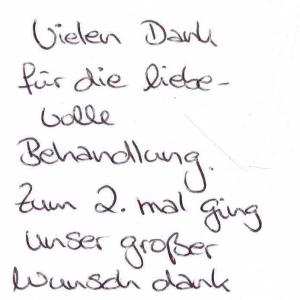 Vielen Dank
für die liebe-
volle
Behandlung.
Zum 2. mal ging
unser großer
Wunsch dank